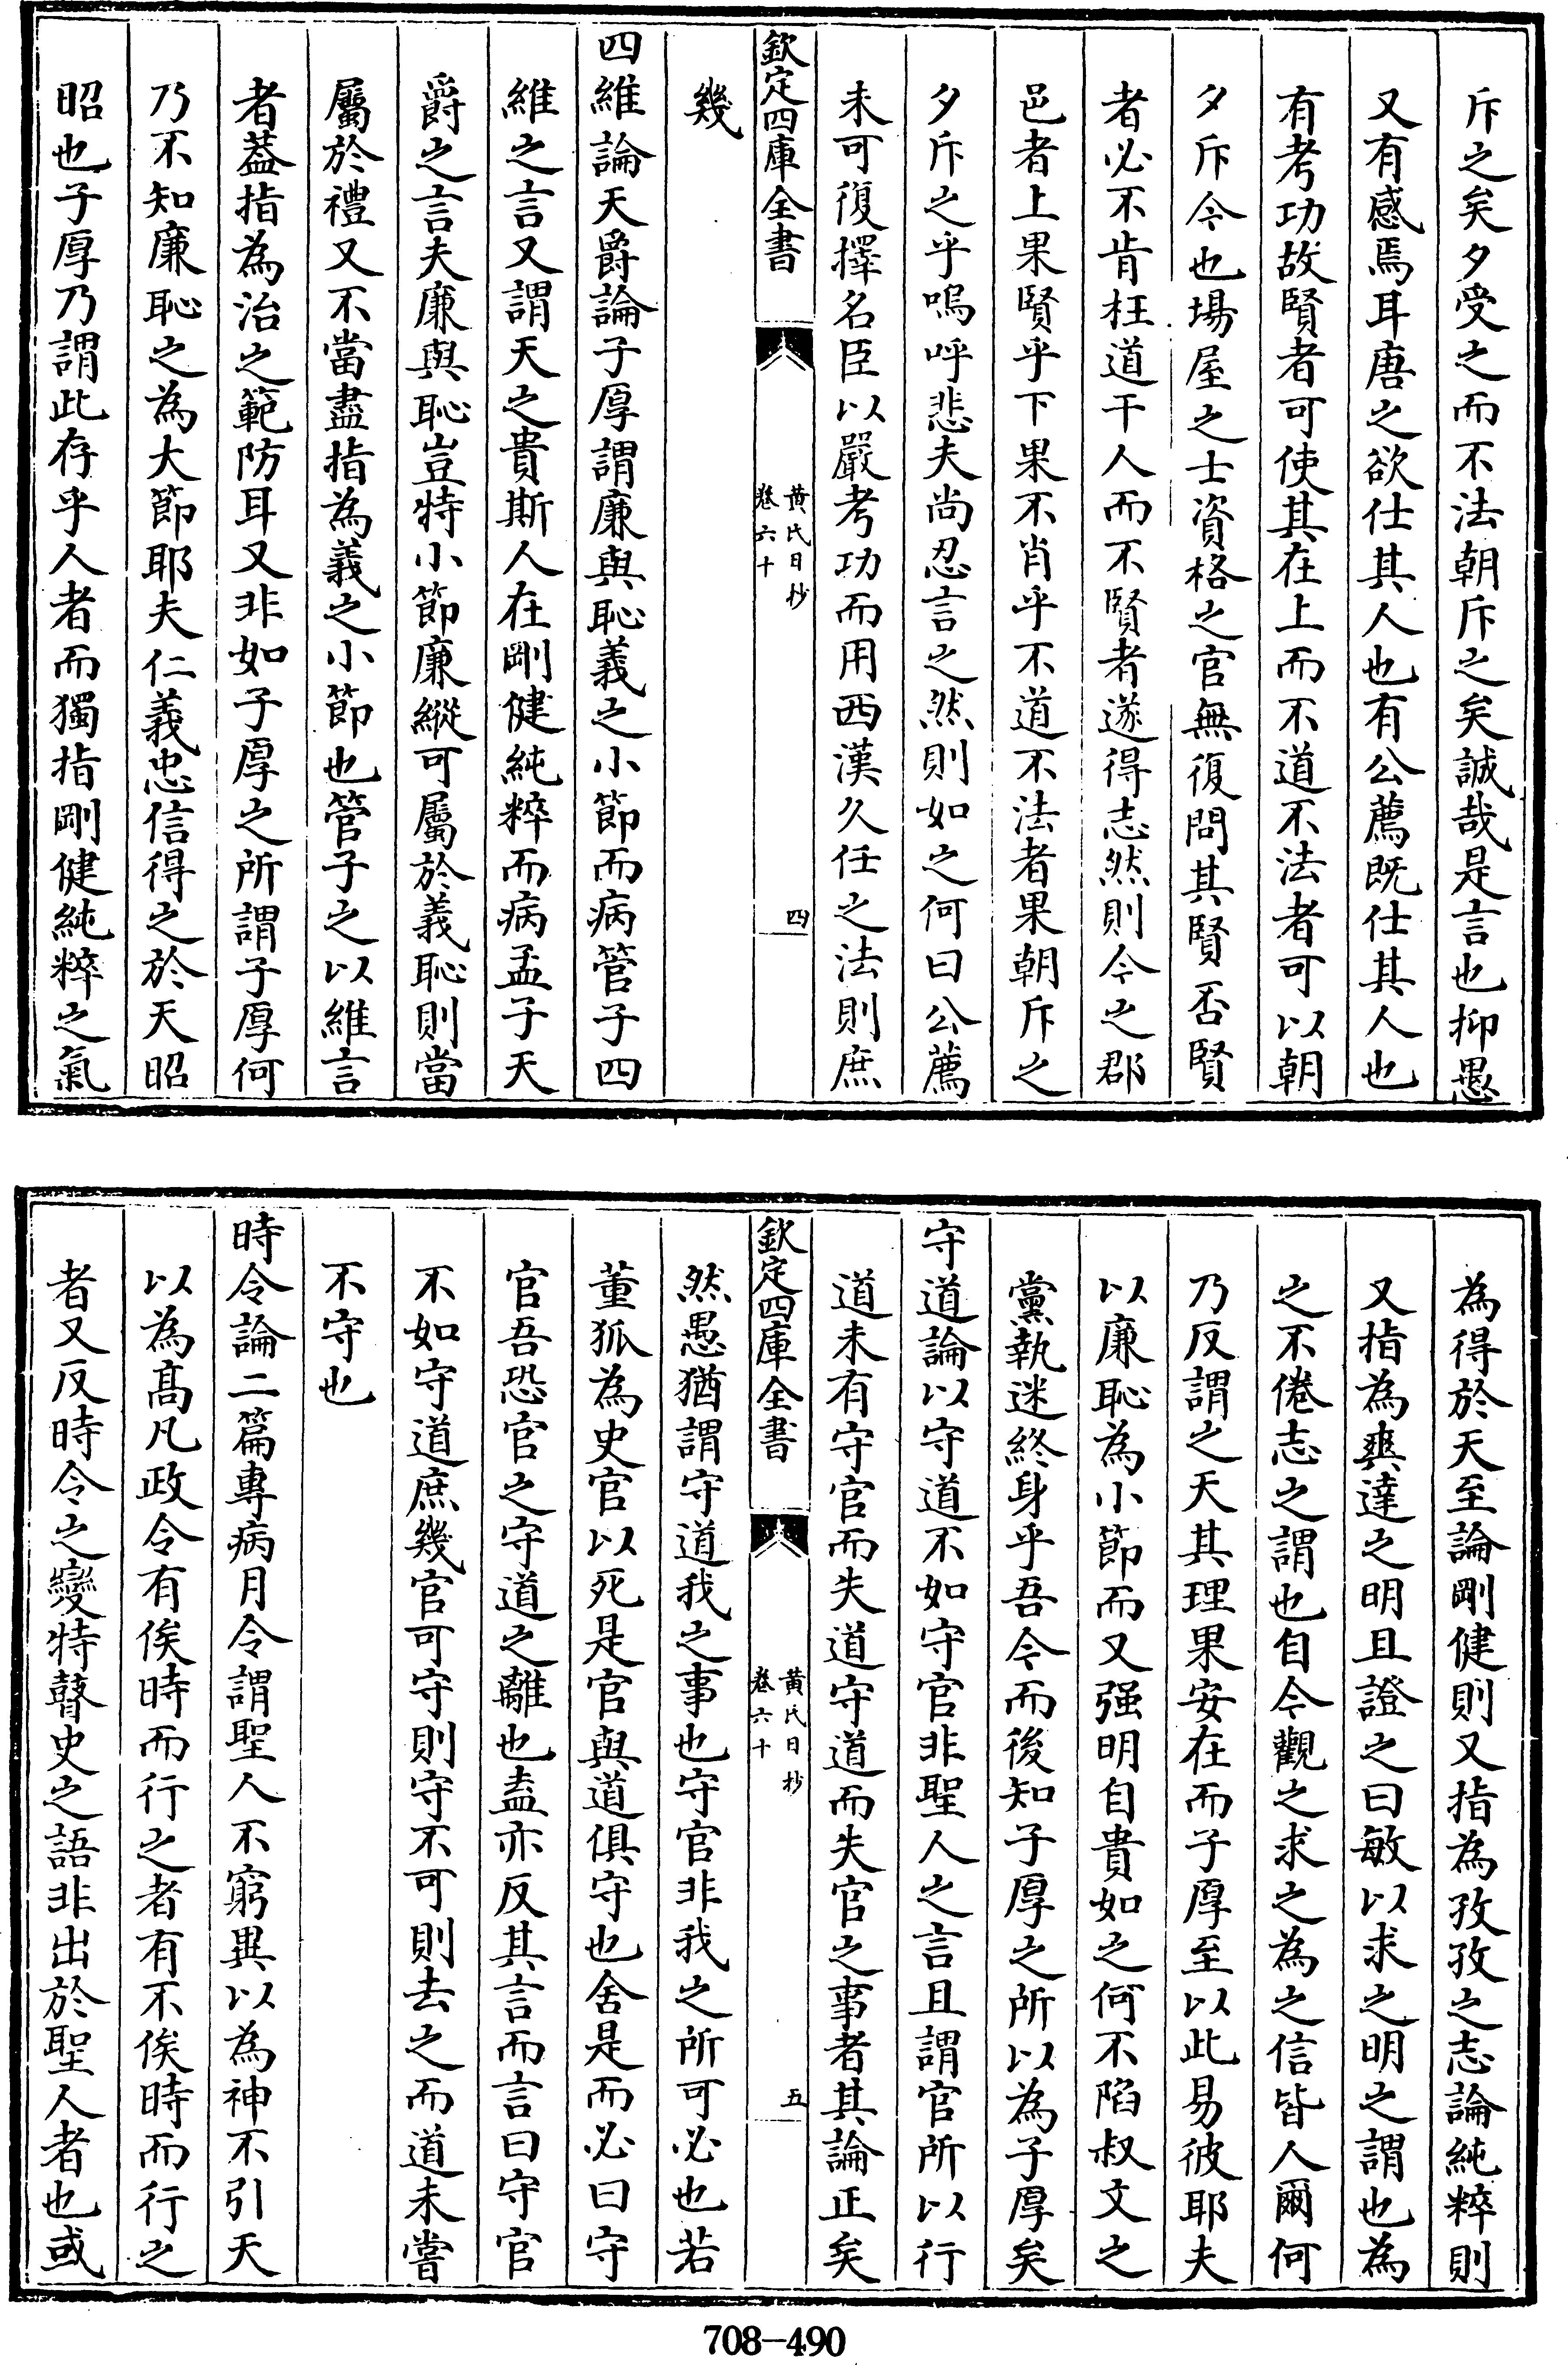 斥之矣夕受之而不法朝斥之矣誠哉是言也抑愚
又有感焉耳唐之欲仕其人也有公薦既仕其人也
有考功故賢者可使其在上而不道不法者可以朝
夕斥今也場屋之士資格之官無復問其賢否賢
者必不肯枉道干人而不賢者遂得志然則今之郡
邑者上果賢乎下果不肖乎不道不法者果朝斥之
夕斥之乎嗚呼悲夫尚忍言之然則如之何曰公薦
未可復擇名臣以嚴考功而用西漢久任之法則庶
欽定四庫全書
黃氏日抄
卷六十
四
幾
四維論天爵論子厚謂廉與恥義之小節而病管子四
維之言又謂天之貴斯人在剛健純粹而病孟子天
爵之言夫廉與恥豈特小節廉縱可屬於義恥則當
屬於禮又不當盡指為義之小節也管子之以維言
者葢指為治之範防耳又非如子厚之所謂子厚何
乃不知廉恥之為大節耶夫仁義忠信得之於天昭
昭也子厚乃謂此存乎人者而獨指剛健純粹之氣
為得於天至論剛健則又指為孜孜之志論純粹則
又指為爽達之明且證之曰敏以求之明之謂也為
之不倦志之謂也自今觀之求之為之信皆人爾何
乃反謂之天其理果安在而子厚至以此易彼耶夫
以廉恥為小節而又强明自貴如之何不陷叔文之
黨執迷終身乎吾今而後知子厚之所以為子厚矣
守道論以守道不如守官非聖人之言且謂官所以行
道未有守官而失道守道而失官之事者其論正矣
欽定四庫全書
黃氏日抄
卷六十
五
然愚猶謂守道我之事也守官非我之所可必也若
董狐為史官以死是官與道俱守也舍是而必曰守
官吾恐官之守道之離也盍亦反其言而言曰守官
不如守道庶幾官可守則守不可則去之而道未嘗
不守也
時令論二篇專病月令謂聖人不窮異以為神不引天
以為髙凡政令有俟時而行之者有不俟時而行之
者又反時令之變特瞽史之語非出於聖人者也或
708—490